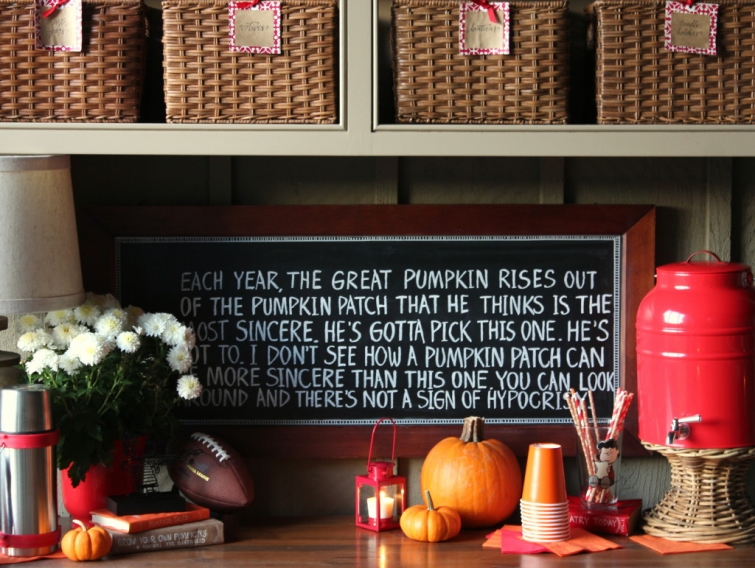 EACH YEAR, THE GREAT PUMPKIN RISES OUT
OF THE PUMPKIN PATCH THAT HE THINKS IS THE
MOST SINCERE. HE'S GOTTA PICK THIS ONE. HE'S
OT TO. I DON'T SEE HOW A PUMPKIN PATCH CAN
MORE SINCERE THAN THIS ONE. YOU CAN LOOK
ROUND AND THERE'S NOT A SIGN OF HYPOCRISY
GROW YOUR OWN PUMPKINS
TRY TODAY!